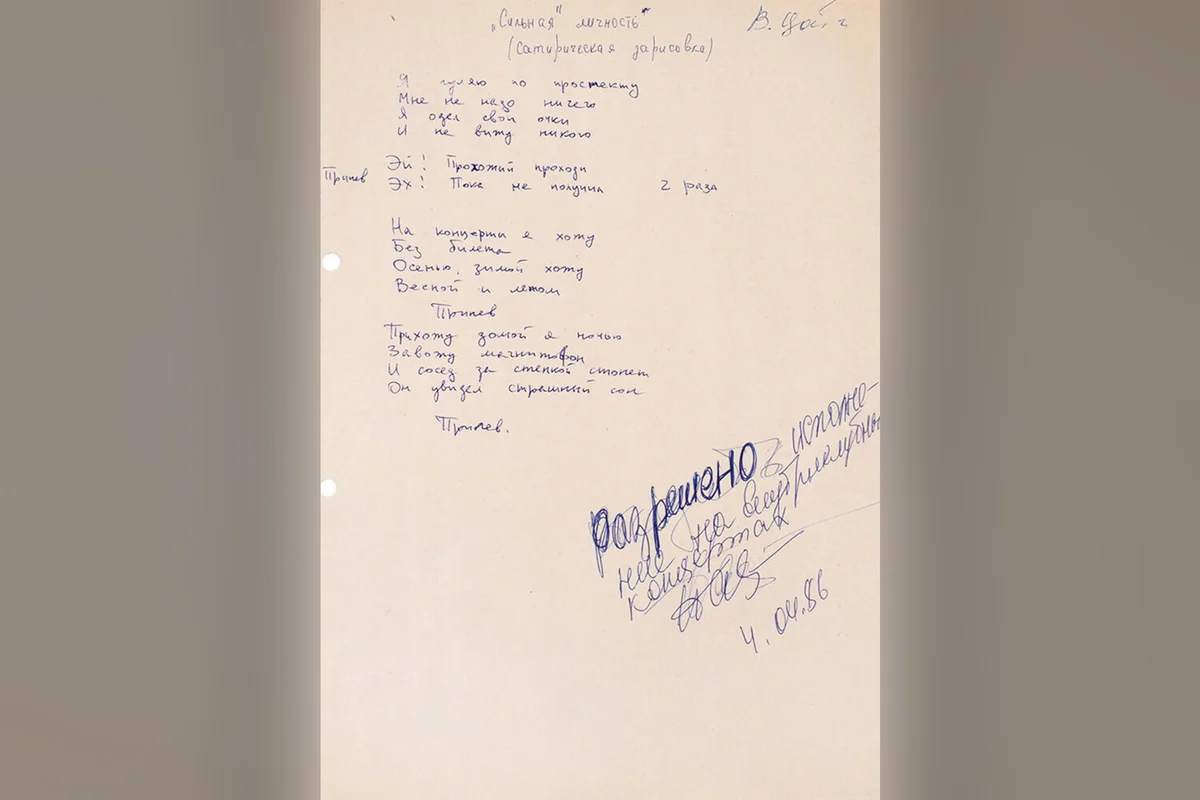 „Сильная" личность
В. Цой
(сатирическая зарисовка)
Я гуляю по простекту
Мне не надо ничего
Я одел свои очки
И не вижу никого
Эй! Прохожий проходи
Припев
Эх! Пока не получил 2 раза
На концерты я хожу
Без билета
Осенью, зимой хожу
Весной и летом
Припев
Прихожу домой я ночью
Завожу магнитофон
И сосед за стенкой стонет
Он увидел страшный сон
Припев.
Разрешено исполне-
ние на внутриклубных
концертах
4.04.86